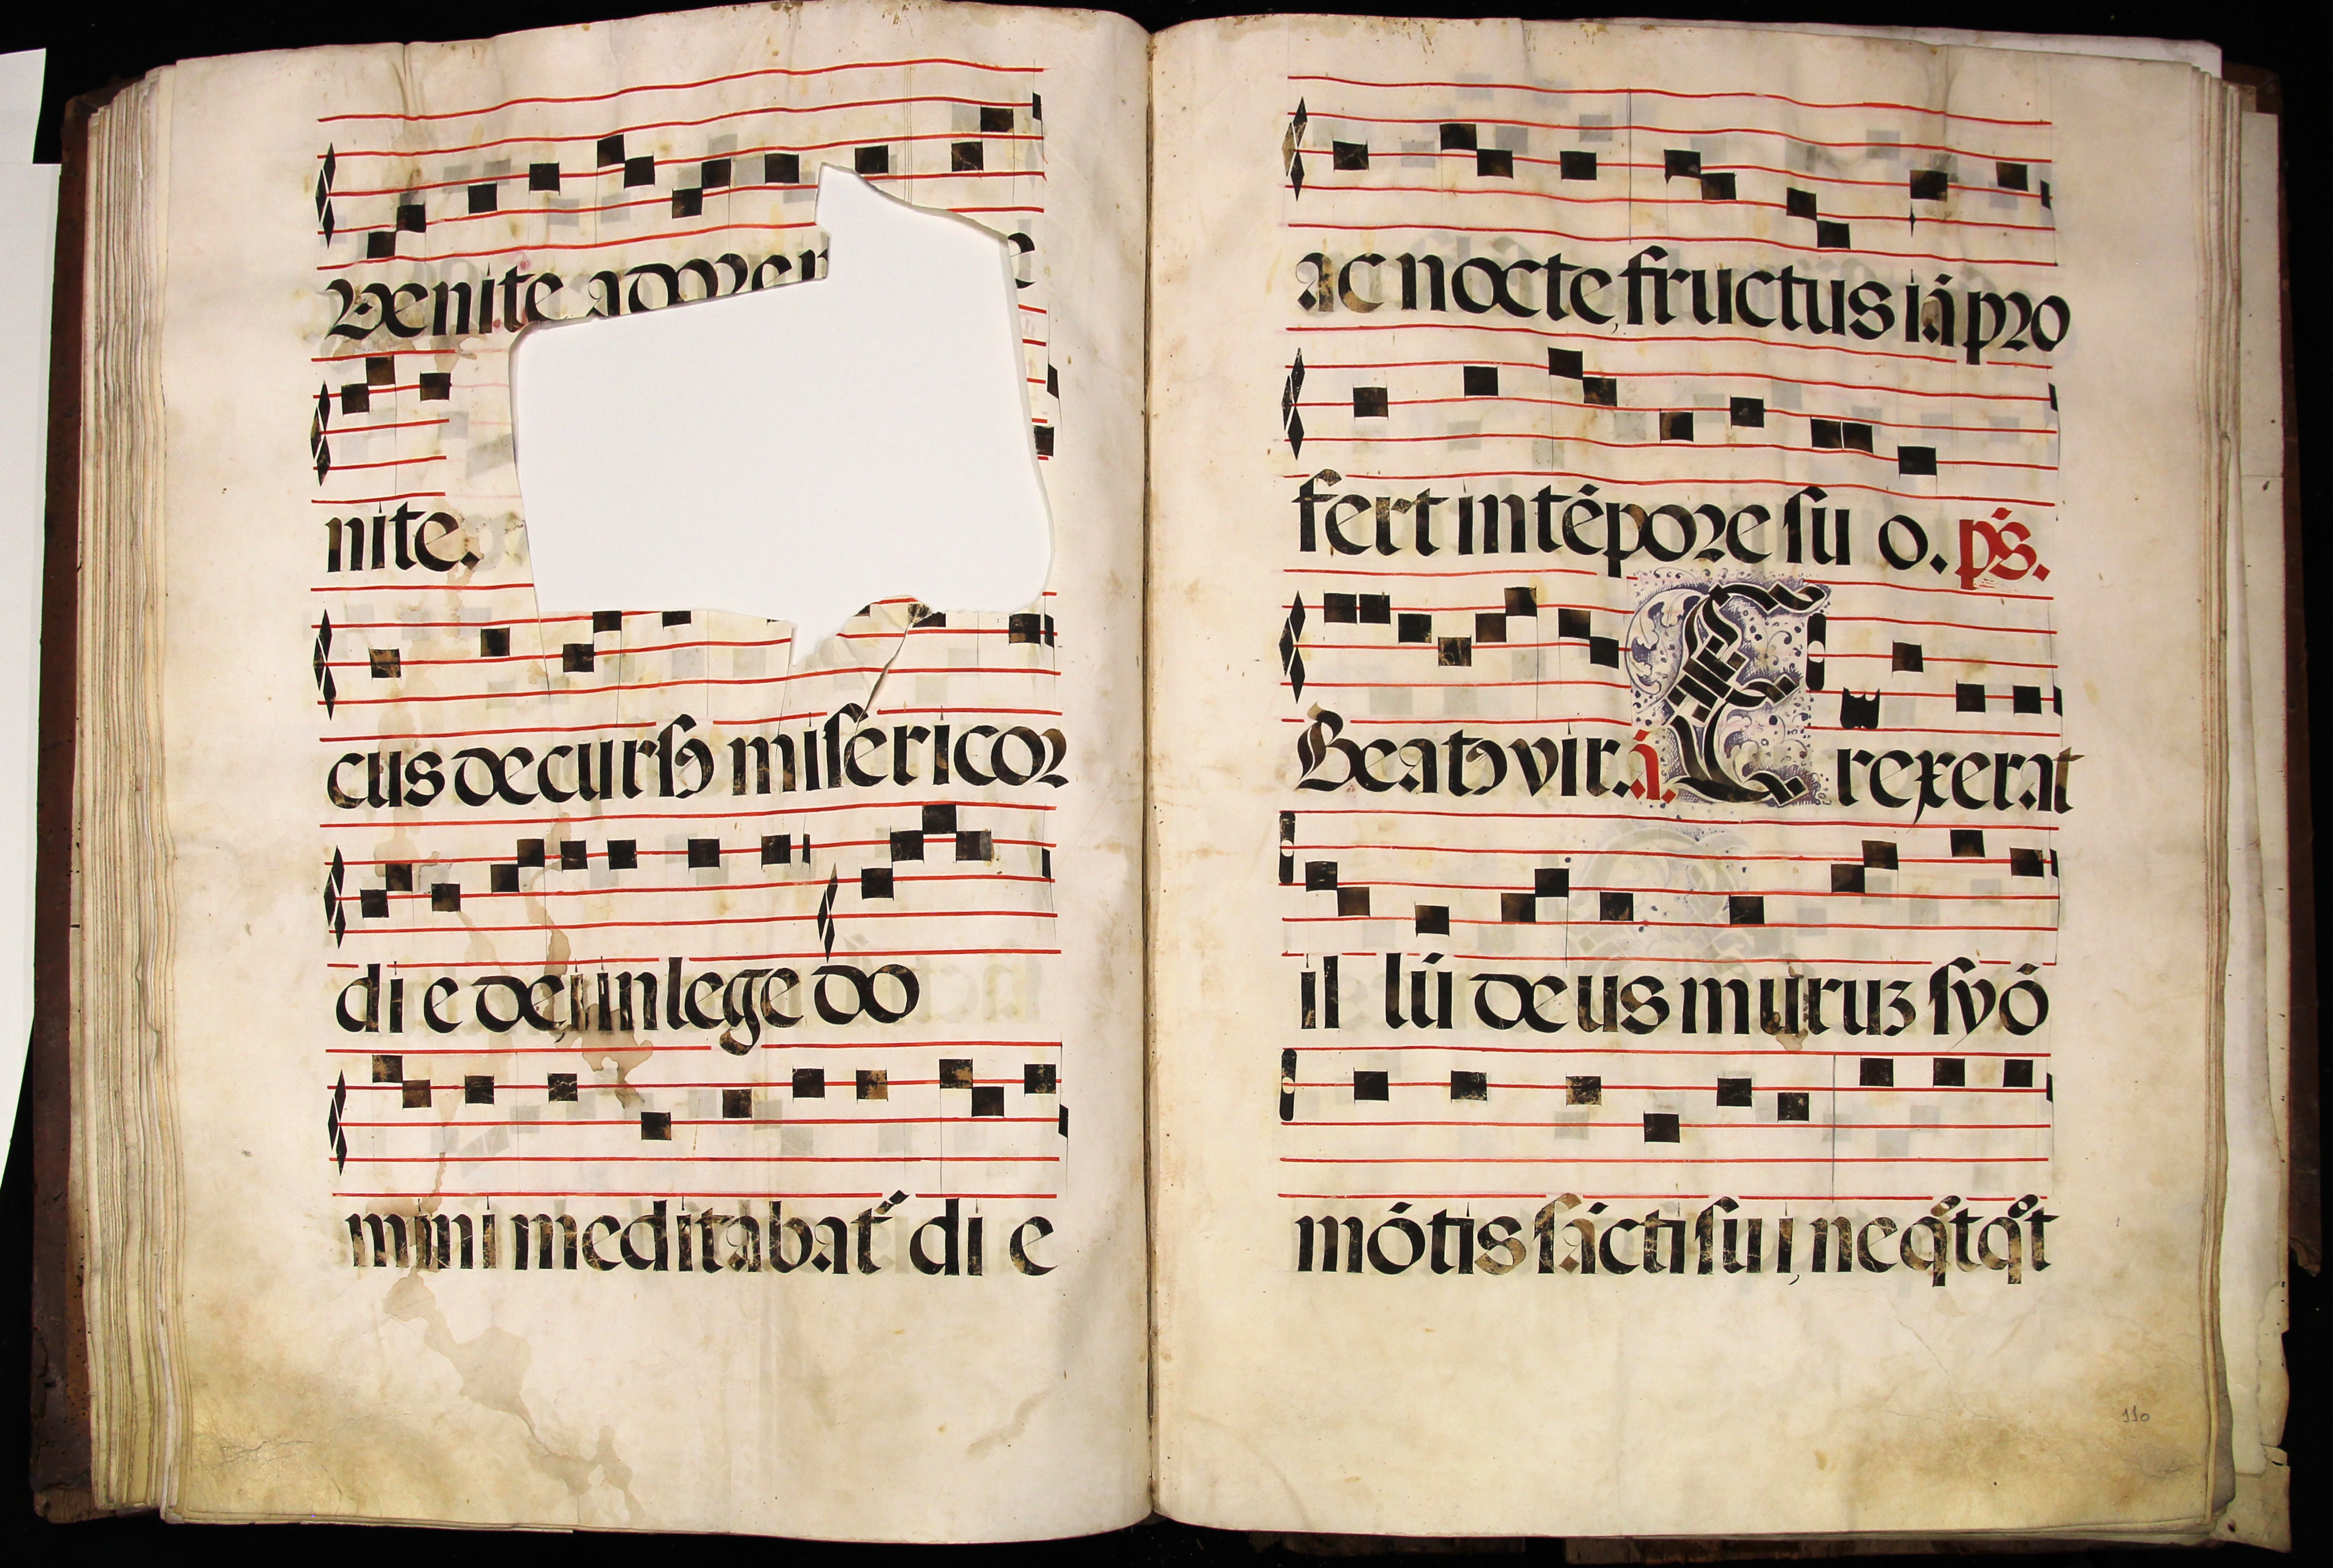 Venite ad
nite.
cus decursꝰ misericor
di e dei in lege do
mini meditabat᷑ di e
ac nocte, fructus iā pro
fert in tēpore su o. ps̄.
Beatꝰ vir. ā. E rexerat
il lū deus muruꝫ syō
mōtis sācti su i, neqͦtqͣt
110